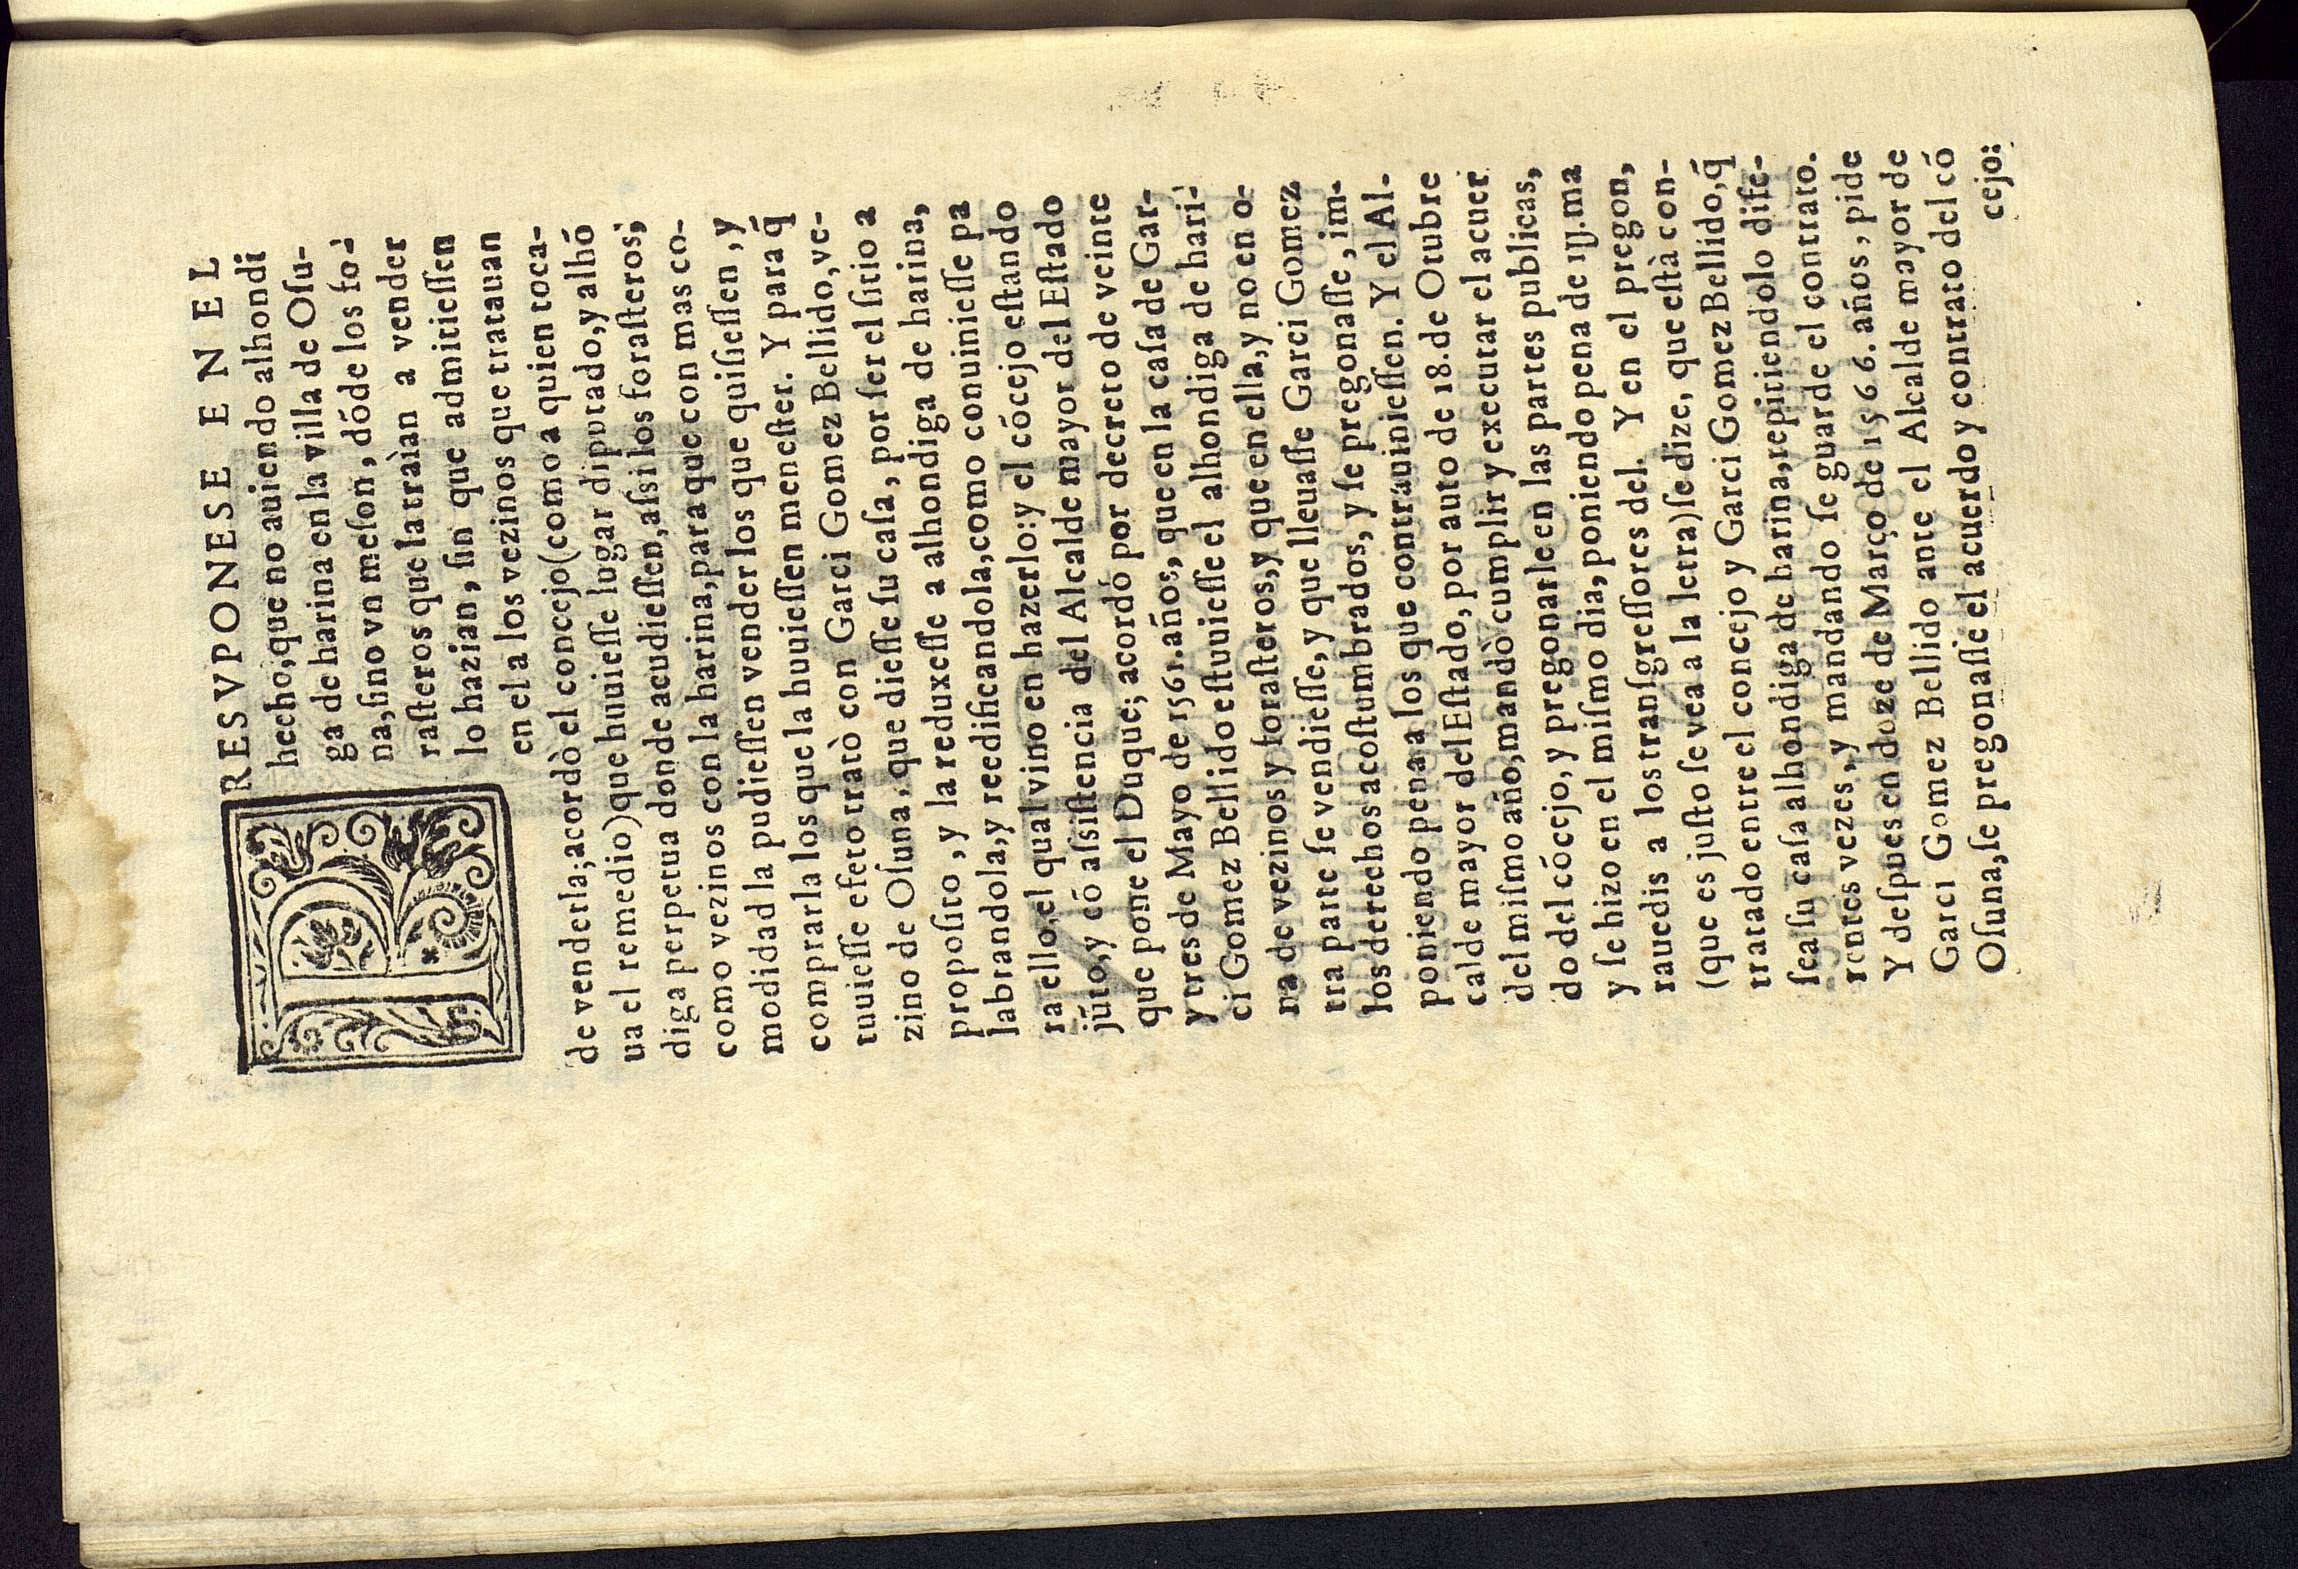 PRESVPONESE EN EL
hecho, que no auiendo alhondi
ga de harina en la villa de Oſu-
na, ſino vn meſon, dóde los fo-
raſteros que la traìan a vender
lo hazian, ſin que admitieſſen
en el a los vezinos que tratauan
de venderla; acordò el concejo (como a quien toca-
ua el remedio) que huuieſſe lugar diputado, y alhó
diga perpetua donde acudieſſen, aſsi los foraſteros,
como vezinos con la harina, para que con mas co-
modidad la pudieſſen vender los que quiſieſſen, y
comprarla los que la huuieſſen meneſter. Y para q̃
tuuieſſe efeto tratò con Garci Gomez Bellido, ve-
zino de Oſuna, que dieſſe ſu caſa, por ſer el ſitio a
propoſito, y la reduxeſſe a alhondiga de harina,
labrandola, y reedificandola, como conuinieſſe pa
ra ello, el qual vino en hazerlo: y el cócejo eſtando
júto, y có aſsiſtencia del Alcalde mayor del Eſtado
que pone el Duque; acordó por decreto de veinte
y tres de Mayo de 1561. años, que en la caſa de Gar-
ci Gomez Bellido eſtuuieſſe el alhondiga de hari-
na de vezinos y foraſteros, y que en ella, y no en o-
tra parte ſe vendieſſe, y que lleuaſſe Garci Gomez
los derechos acoſtumbrados, y ſe pregonaſſe, im-
poniendo pena a los que contrauinieſſen. Y el Al-
calde mayor del Eſtado, por auto de 18. de Otubre
del miſmo año, mandò cumplir y executar el acuer
do del cócejo, y pregonarle en las partes publicas,
y ſe hizo en el miſmo dia, poniendo pena de iij. ma
rauedis a los tranſgreſſores del. Y en el pregon,
(que es juſto ſe vea a la letra) ſe dize, que eſtà con-
tratado entre el concejo y Garci Gomez Bellido, q̃
ſea ſu caſa alhondiga de harina, repitiendolo dife-
rentes vezes, y mandando ſe guarde el contrato.
Y deſpues en doze de Março de 1566. años, pide
Garci Gomez Bellido ante el Alcalde mayor de
Oſuna, ſe pregonaſſe el acuerdo y contrato del có
cejo: